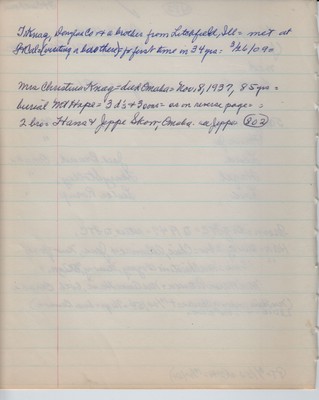 T. Knag, Douglas Co + a brother from Litchfield, Ill = met at
visiting a brother for first time in 34 yrs = 3/26/09 =
Mrs Christina Knag = died Omaha = Nov. 8, 1937, 85 yrs =
burial Mt Hope = 3 d's + 3 sons = as on reverse page =
2 bro = Hans + Jeppe Skow, Omaha. Jeppe 803